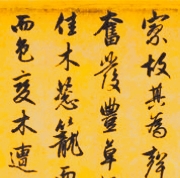 寥故其為聲
奮發豐草
佳木葱籠而
而色變木遭